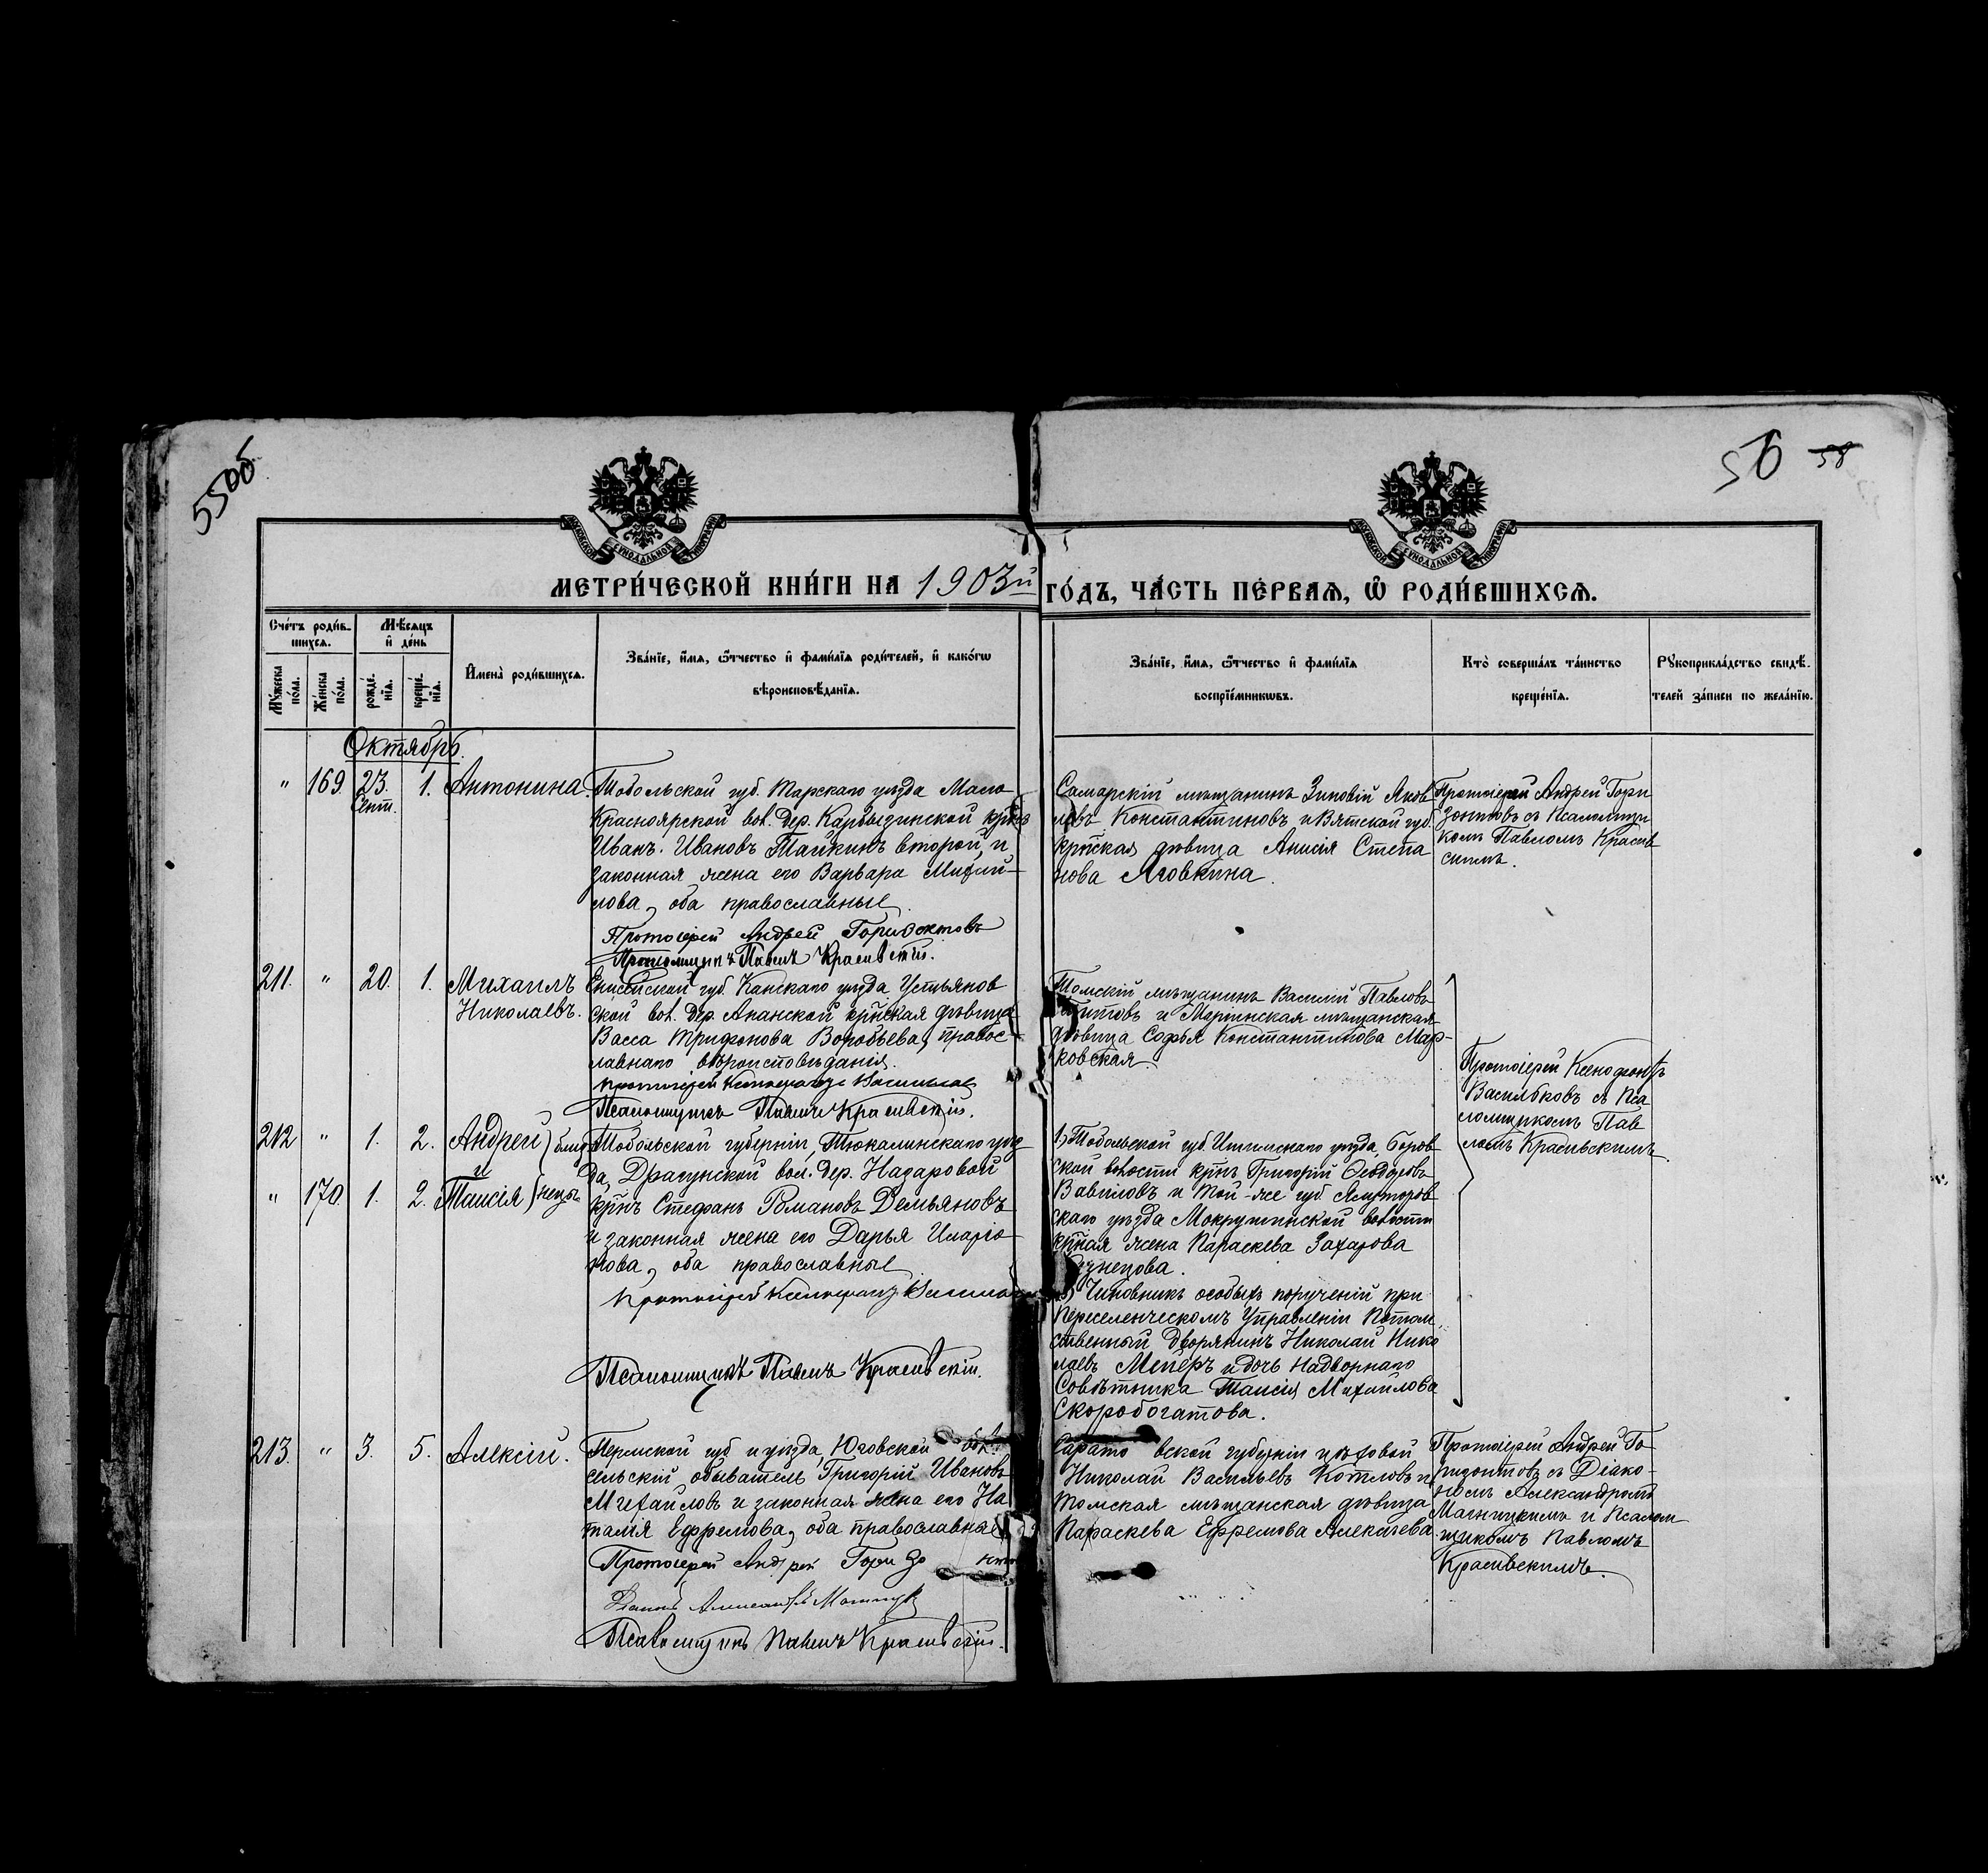 55об
56 58
МОСКОВСКОЙ СѴНОДАЛЬНОЙ ТИПОГРАФІИ
МОСКОВСКОЙ СѴНОДАЛЬНОЙ ТИПОГРАФІИ
МЕТРИ́ЧЕСКОЙ КНИ́ГИ НА 1903й ГО́ДЪ, ЧА́СТЬ ПЕ́РВАѦ, Ѽ РОДИ́ВШИХСѦ.
Сче́тъ роди́в-
шихсѧ.
Мꙋ́жеска по́ла.
Же́нска по́ла.
Мѣ́сѧцъ и҆ де́нь
рожде́нїѧ.
креще́нїѧ.
И҆мена̀ роди́вшихсѧ.
Зва́нїе, и҆́мѧ, ѻ҆́тчество и҆ фами́лїѧ роди́телей, и҆ како́гѡ
вѣроисповѣ́данїѧ.
Зва́нїе, и҆́мѧ, ѻ҆́тчество и҆ фами́лїѧ
воспрїе́мникѡвъ.
Кто̀ соверша́лъ та́инство
креще́нїѧ.
Рꙋкоприкла́дство свидѣ́-
телей за́писи по жела́нїю.
Октябрь.
" 169. 23. Сент. 1. Антонина.
Тобольской губ. Тарскаго уѣзда Мало
Красноярской вол. дер. Карбызинской кр̃нъ
Иванъ Ивановъ Тайкинъ второй, и
законная жена его Варвара Михай-
лова, оба православные
Протоіерей Андрей Горизонтовъ
Псаломщикъ Павелъ Красивскій.
Самарскій мѣщанинъ Зиновій Яков
левъ Константиновъ и Вятской губ.
кр̃нская дѣвица Анисія Степа
нова Яговкина.
Протоіерей Андрей Гори
зонтовъ съ Псаломщи
комъ Павломъ Красив
скимъ.
211. " 20. 1. Михаилъ
Николаевъ.
Енисейской губ. Канскаго уѣзда Устьянов
ской вол. дер. Ананской кр̃нская дѣвица
Васса Трифонова Воробьева, правос-
лавнаго вѣроисповѣданія.
Протоіерей Ксенофонтъ Васильковъ
Псаломщикъ Павелъ Красивскій.
Томскій мѣщанинъ Василій Павловъ
Титовъ и Маріинская мѣщанская
дѣвица Софья Константинова Мар-
ковская.
Протоіерей Ксенофонтъ
Васильковъ съ Пса
ломщикомъ Пав
ломъ Красивскимъ.
212 " 1. 2. Андрей
и близ
" 170. 1. 2. Таисія нецы
Тобольской губерніи, Тюкалинскаго уѣз
да, Драгунской вол. дер. Назаровой
кр̃нъ Стефанъ Романовъ Демьяновъ
и законная жена его Дарья Иларіо
нова, оба православные
Протоіерей Ксенофонтъ Васильковъ
Псаломщикъ Павелъ Красивскій.
1) Тобольской губ. Ишимскаго уѣзда, Боров
ской волости кр̃нъ Григорій Ѳеодоровъ
Вавиловъ и той-же губ Ялуторов
скаго уѣзда Мокрушинской волости
кр̃ная жена Параскева Захарова
Кузнецова.
2) Чиновникъ особыхъ порученій при
Переселенческомъ Управленіи Потом
ственный дворянинъ Николай Нико
лаевъ Мейеръ и дочь Надворнаго
Совѣтника Таисія Михайлова
Скоробогатова.
213. " 3. 5. Алексій.
Пермской губ и уѣзда, Юговской вол.
сельскій обыватель Григорій Ивановъ
Михайловъ и законная жена его На
талія Ефремова, оба православные
Протоіерей Андрей Горизонтовъ
Псаломщикъ Павелъ Красивскій.
Саратовской губерніи цѣховой
Николай Васильевъ Котловъ и
Томская мѣщанская дѣвица
Параскева Ефремова Алексѣева.
Протоіерей Андрей Го
ризонтовъ съ Діако-
номъ Александромъ
Магницкимъ и Псалом
щикомъ Павломъ
Красивскимъ.